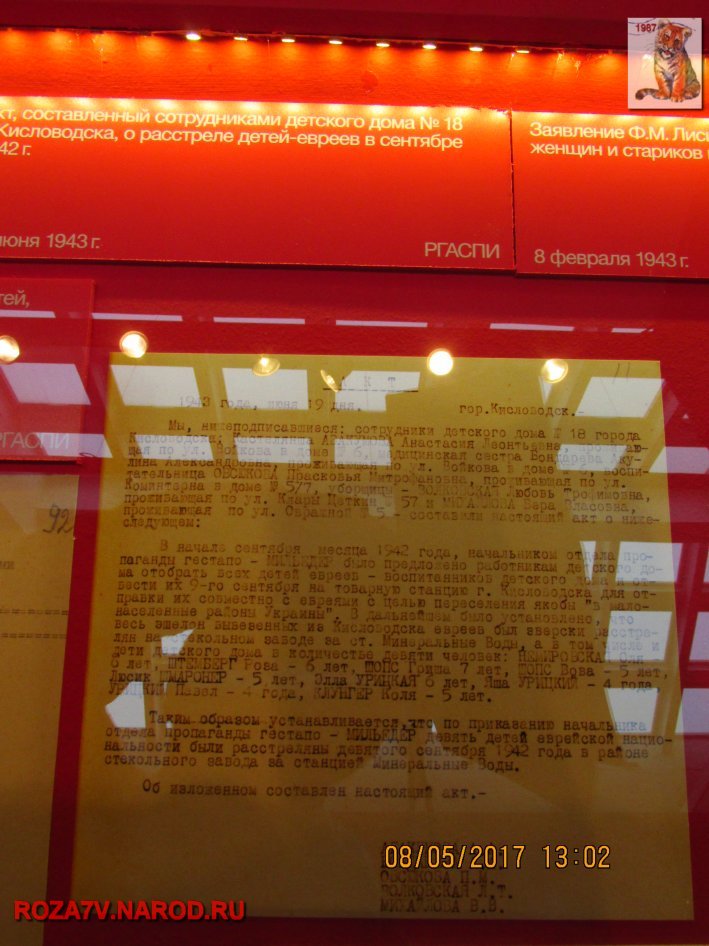 1987
кт, составленный сотрудниками детского дома № 18
Кисловодска, о расстреле детей-евреев в сентябре
42 г.
июня 1943 г.
РГАСПИ
Заявление Ф.М. Лис
женщин и стариков
8 февраля 1943 г.
тей,
РГАСПИ
92
А К Т
1943 года, июня 19 дня. гор.Кисловодск.-
Мы, нижеподписавшиеся: сотрудники детского дома № 18 города
Кисловодска: Кастелянша Анастасия Леонтьевна, прожива-
щая по ул. Войкова в доме № 6, медицинская сестра Бондарева Аку-
лина Александровна, проживающая по ул. Войкова в доме воспи-
тательница ОВСЯКОВА Прасковья Митрофановна, проживающая по ул.
Коминтерна в доме № 5/7, уборщицы - ВОЛКОВСКАЯ Любовь Трофимовна,
проживающая по ул. Клары Цеткин 57 и МИХАЙЛОВА Вера Власовна,
проживающая по ул. Овражной № 5 - составили настоящий акт о ниже-
следующем:
В начале сентября месяца 1942 года, начальником отдела про-
паганды гестапо - МИЛЬКДЕР было предложено работникам детского до-
ма отобрать всех детей евреев - воспитанников детского дома и от-
вести их 9-го сентября на товарную станцию г. Кисловодска для от-
правки их совместно с евреями с целью переселения якобы "в мало-
населенные районы Украины". В дальнейшем было установлено, что
весь эшелон вывезенных из Кисловодска евреев был зверски расстре-
лян на стекольном заводе за ст. Минеральные Воды, а в том числе и
дети детского дома в количестве девяти человек: НЕМИРОВСКАЯ
6 лет, ШТЕМБЕРГ Роза - 6 лет, ШОПС Гриша 7 лет, ШОПС Вова - 5 лет,
Люсик ШМАРОНЕР - 5 лет, Элла УРИЦКАЯ 6 лет, Яша УРИЦКИЙ - 4 года
УРИЦКИЙ Павел - 4 года, КЛУНГЕР Коля - 5 лет.
Таким образом устанавливается, что по приказанию начальника
отдела пропаганды гестапо - МИЛЬКДЕР девять детей еврейской нацио-
нальности были расстреляны девятого сентября 1942 года в районе
стекольного завода за станцией Минеральные Воды.
Об изложенном составлен настоящий акт.-
ОВСЯКОВА П.М.
ВОЛКОВСКАЯ Л.Т.
МИХАЙЛОВА В.В.
08/05/2017 13:02
ROZA7V.NAROD.RU